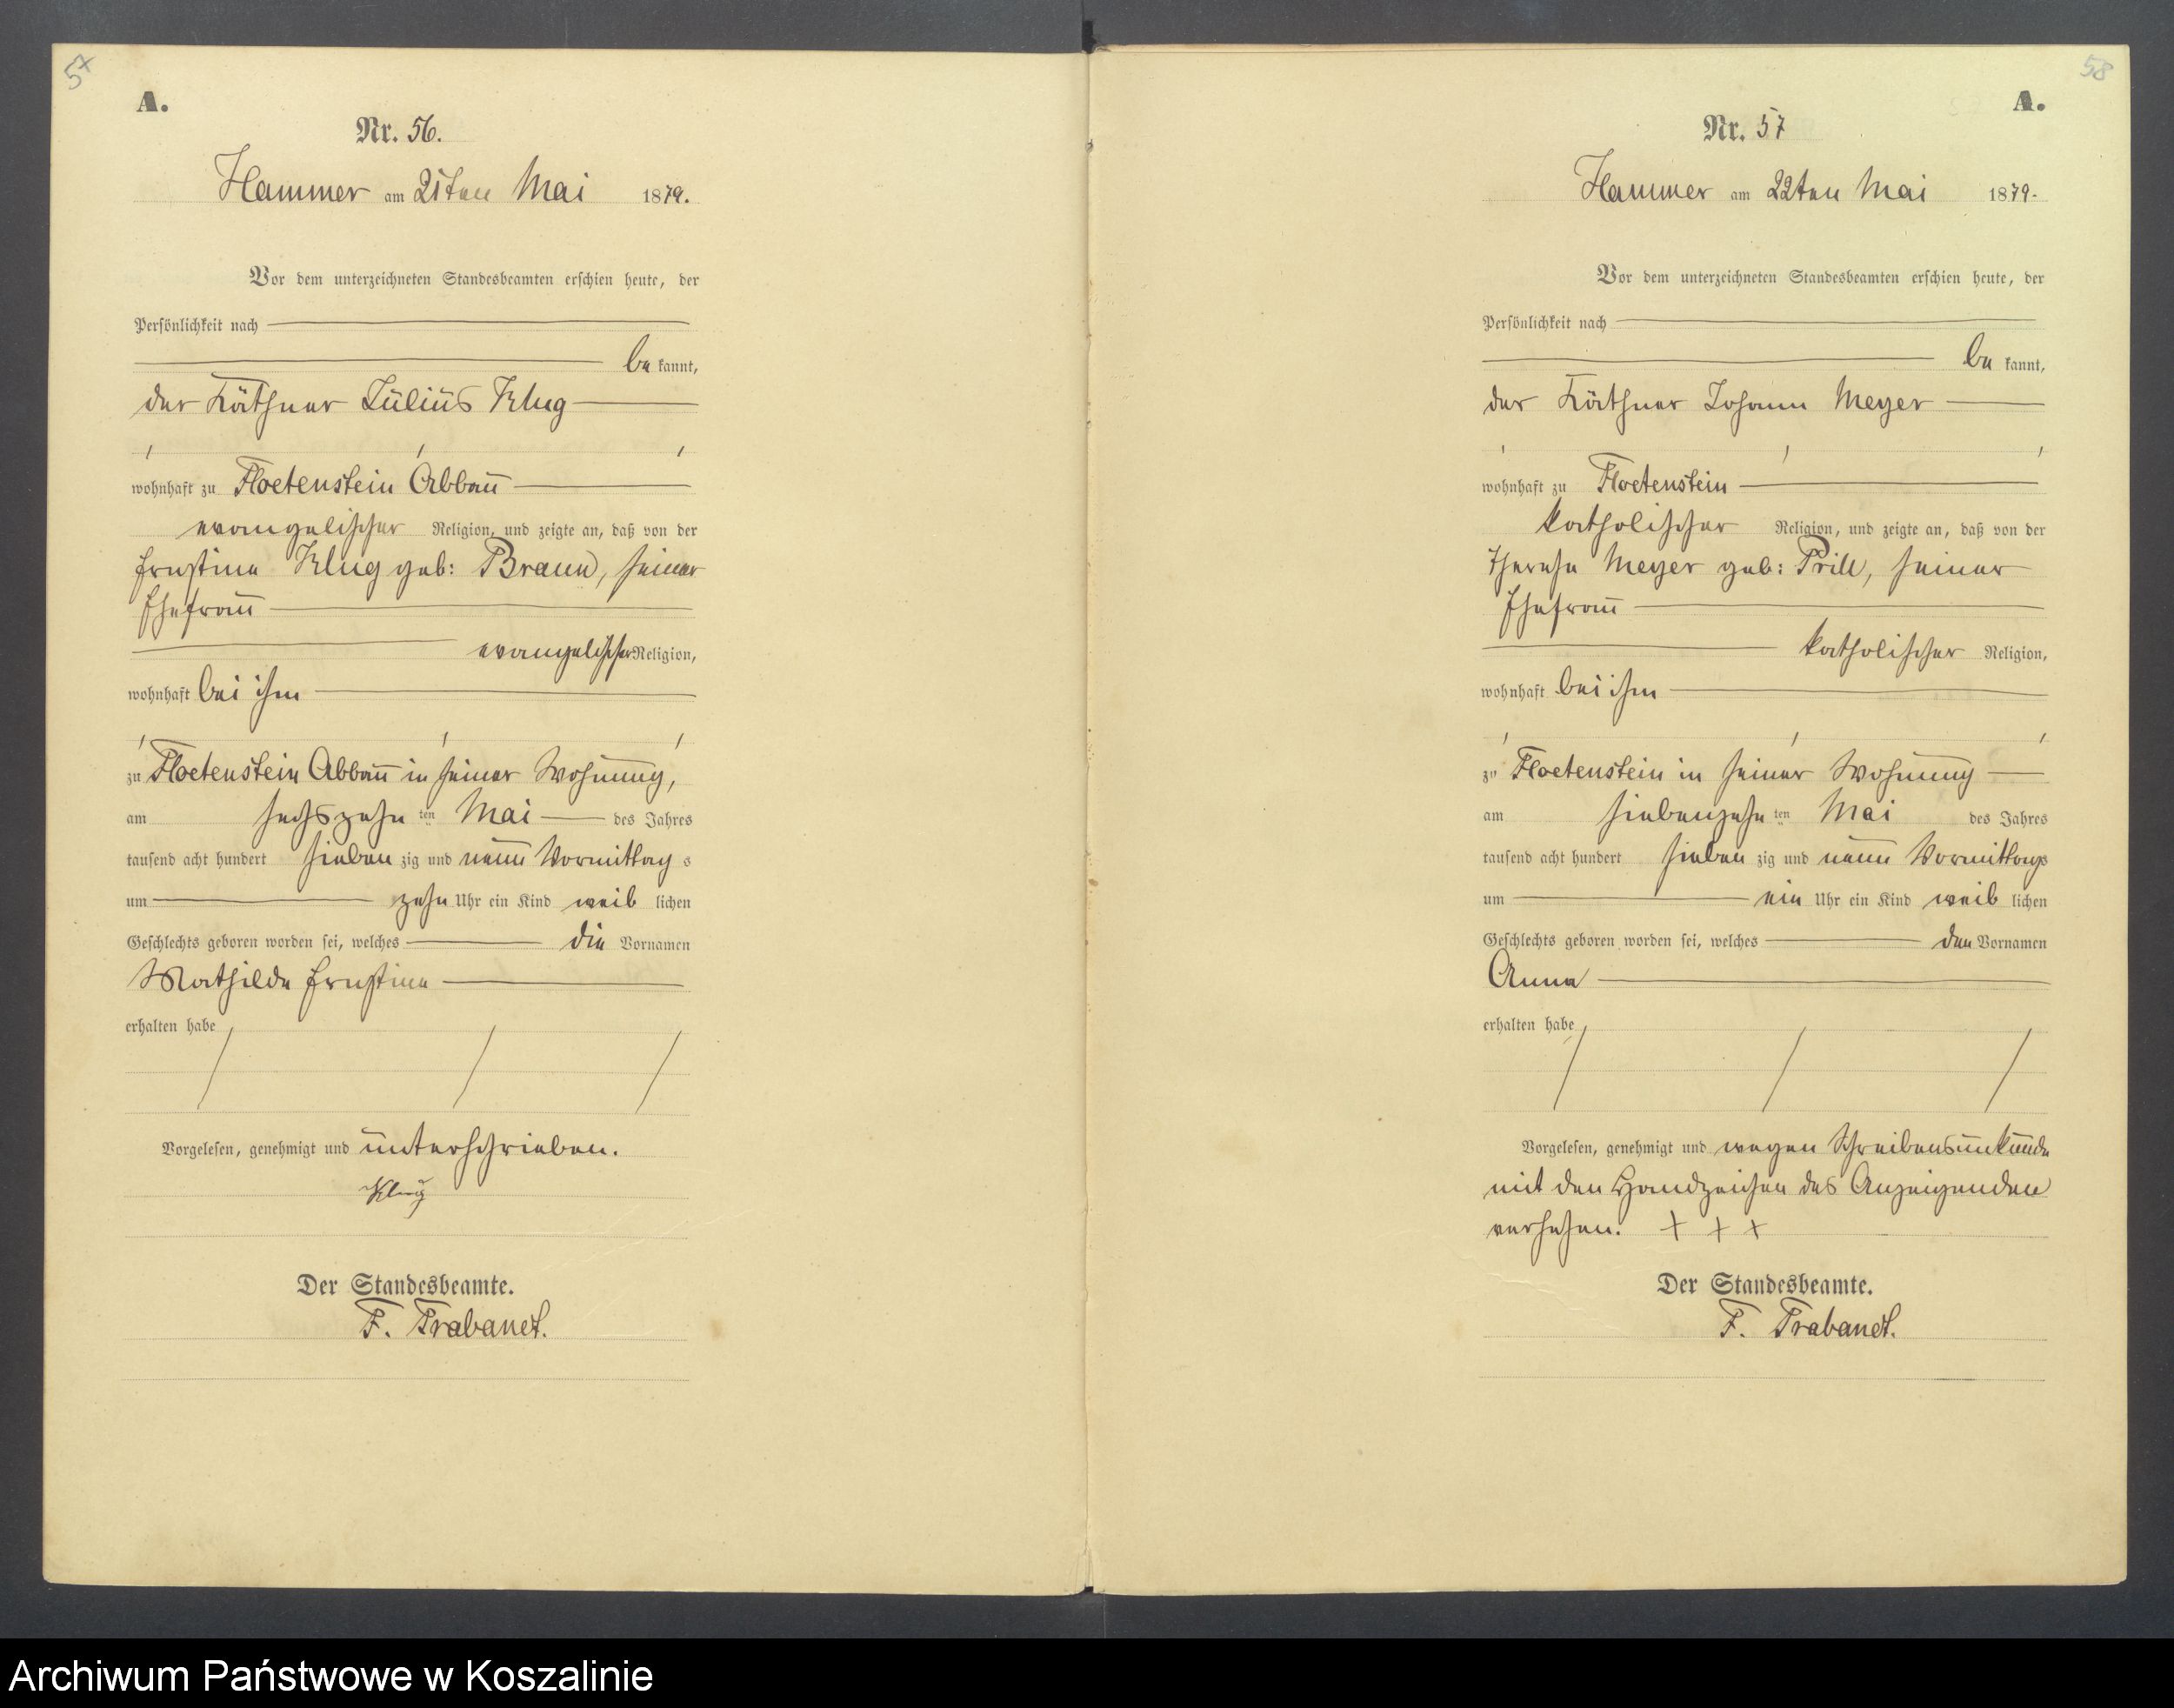 57
A.
Nr. 56.
Hammer am 21ten Mai 1879.
Vor dem unterzeichneten Standesbeamten erschien heute, der
Persönlichkeit nach
be kannt,
der Käthner Julius Klug
wohnhaft zu Floetenstein Abbau
evangelischer Religion, und zeigte an, daß von der
Ernstine Klug geb: Braun, seiner
Ehefrau
evangelischer Religion,
wohnhaft bei ihm
zu Floetenstein Abbau in seiner Wohnung,
am sechszehn ten Mai des Jahres
tausend acht hundert sieben zig und neun Vormittag s
um zehn Uhr ein Kind weib lichen
Geschlechts geboren worden sei, welches die Vornamen
Mathilde Ernstine
erhalten habe
Vorgelesen, genehmigt und unterschrieben.
Klug
Der Standesbeamte.
F. Trabandt.
58
A.
Nr. 57
Hammer am 22ten Mai 1879.
Vor dem unterzeichneten Standesbeamten erschien heute, der
Persönlichkeit nach
be kannt,
der Käthner Johann Meyer
wohnhaft zu Floetenstein
katholischer Religion, und zeigte an, daß von der
Therese Meyer geb: Prill, seiner
Ehefrau
katholischer Religion,
wohnhaft bei ihm
zu Floetenstein in seiner Wohnung
am siebenzehn ten Mai des Jahres
tausend acht hundert sieben zig und neun Vormittags
um ein Uhr ein Kind weib lichen
Geschlechts geboren worden sei, welches den Vornamen
Anna
erhalten habe
Vorgelesen, genehmigt und wegen Schreibensunkunde
mit den Handzeichen des Anzeigenden
versehen. + + +
Der Standesbeamte.
F. Trabandt.
Archiwum Państwowe w Koszalinie